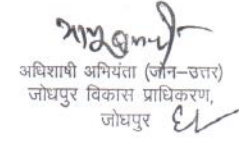 अधिशाषी अभियंता (जोन-उत्तर)
जोधपुर विकास प्राधिकरण,
जोधपुर